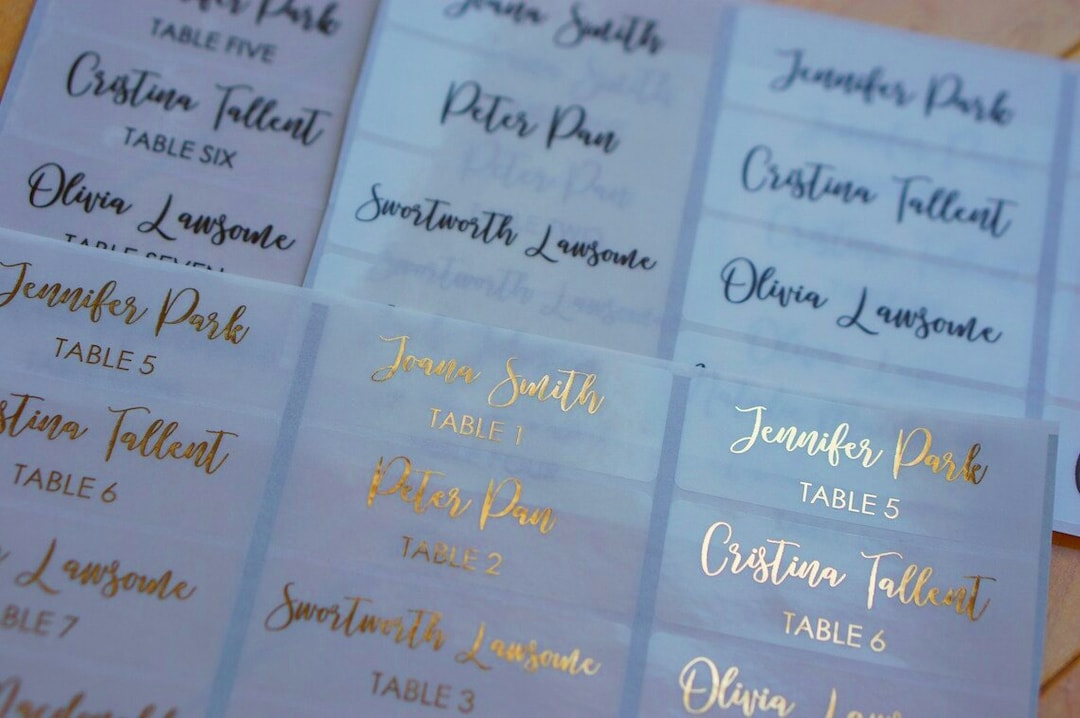 Jennifer Park
TABLE FIVE
Cristina Tallent
TABLE SIX
Olivia Lawsome
TABLE SEVEN
Joana Smith
Peter Pan
Swortworth Lawsome
Jennifer Park
Cristina Tallent
Olivia Lawsome
Jennifer Park
TABLE 5
stina Tallent
TABLE 6
Lawsome
BLE 7
Joana Smith
TABLE 1
Peter Pan
TABLE 2
Swortworth Lawsome
TABLE 3
Jennifer Park
TABLE 5
Cristina Tallent
TABLE 6
Olivia